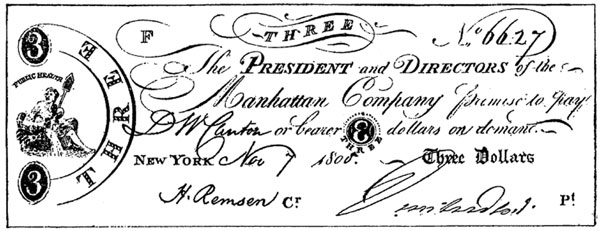 3
THREE
PUBLIC HEALTH
3
F THREE No. 6627
The PRESIDENT and DIRECTORS of the
Manhattan Company promise to pay
D W Clinton or bearer 3 THREE dollars on demand
NEW YORK Nov 7 1800. Three Dollars
H. Remsen Cr. Pt.